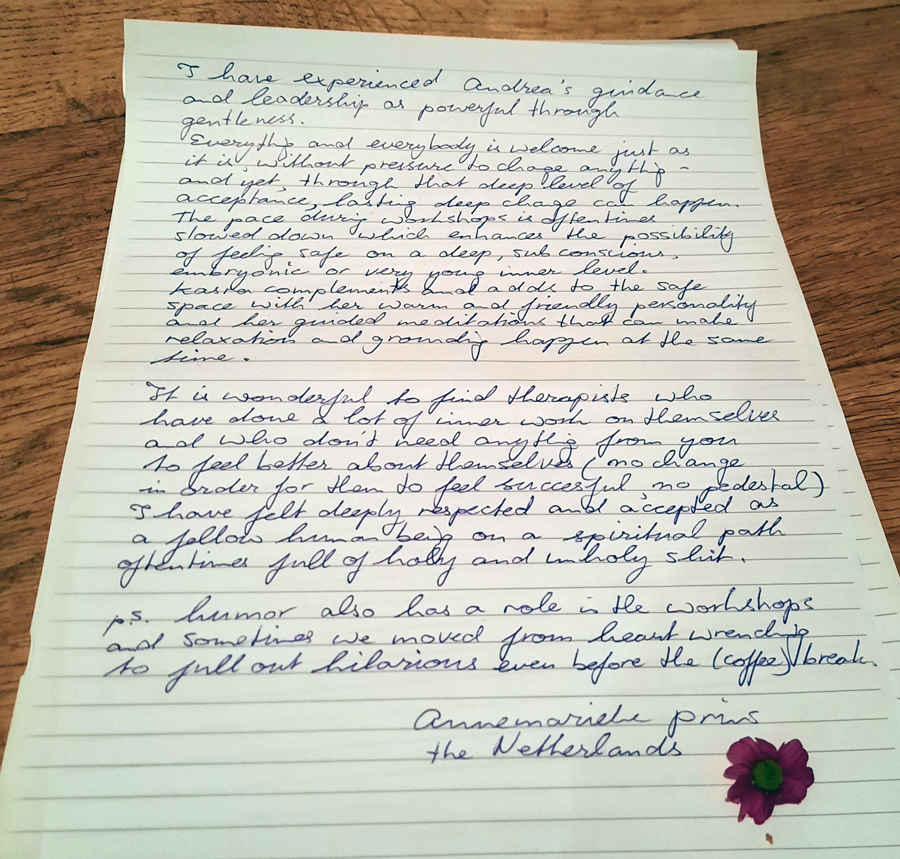 I have experienced Andrea's guidance
and leadership as powerful through
gentleness.
Everything and everybody is welcome just as
it is, without pressure to change anything -
and yet, through that deep level of
acceptance, lasting deep change can happen.
The pace during workshops is oftentimes
slowed down which enhances the possibility
of feeling safe on a deep, subconscious,
embryonic or very young inner level.
complements and adds to the safe
space with her warm and friendly personality
and her guided meditations that can make
relaxation and grounding happen at the same
time.
It is wonderful to find therapists who
have done a lot of inner work on themselves
and who don't need anything from you
to feel better about themselves (no change
in order for them to feel succesful, no pedestal)
I have felt deeply respected and accepted as
a fellow human being on a spiritual path
oftentimes full of holly and unholy shit.
ps. humor also has a role in the workshops
and sometimes we moved from heart wrenching
to full out hilarious even before the (coffee) break.
Annemarieke Prins
the Netherlands